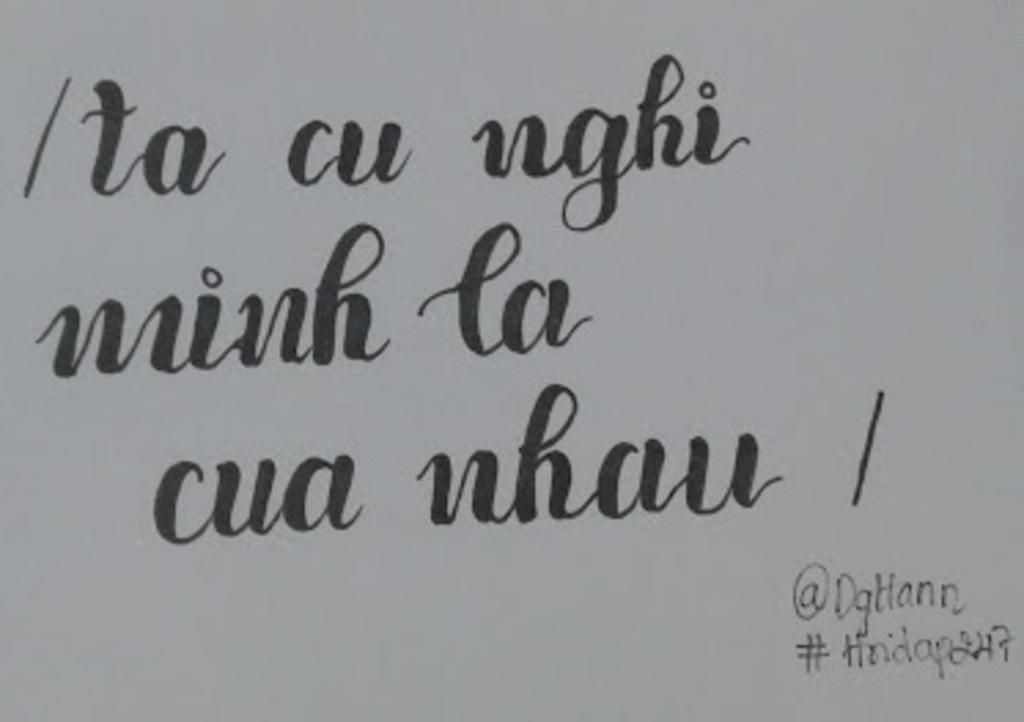 /ta cu nghi
minh la
cua nhau /
@DgHann
#Hoidap247